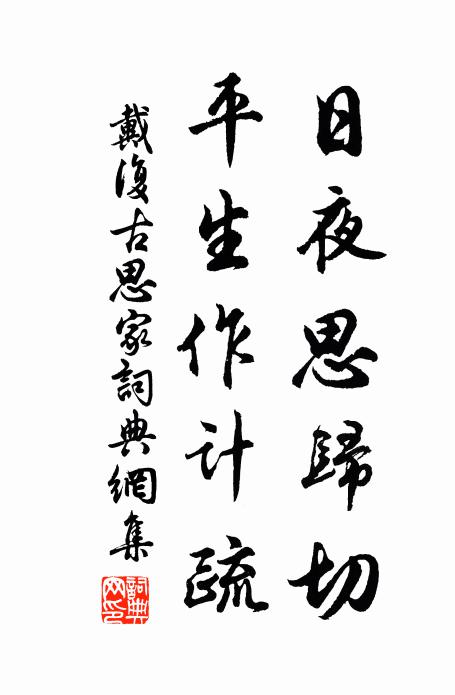 日夜思歸切
平生作计疏
戴復古思家詞典網集
詞典